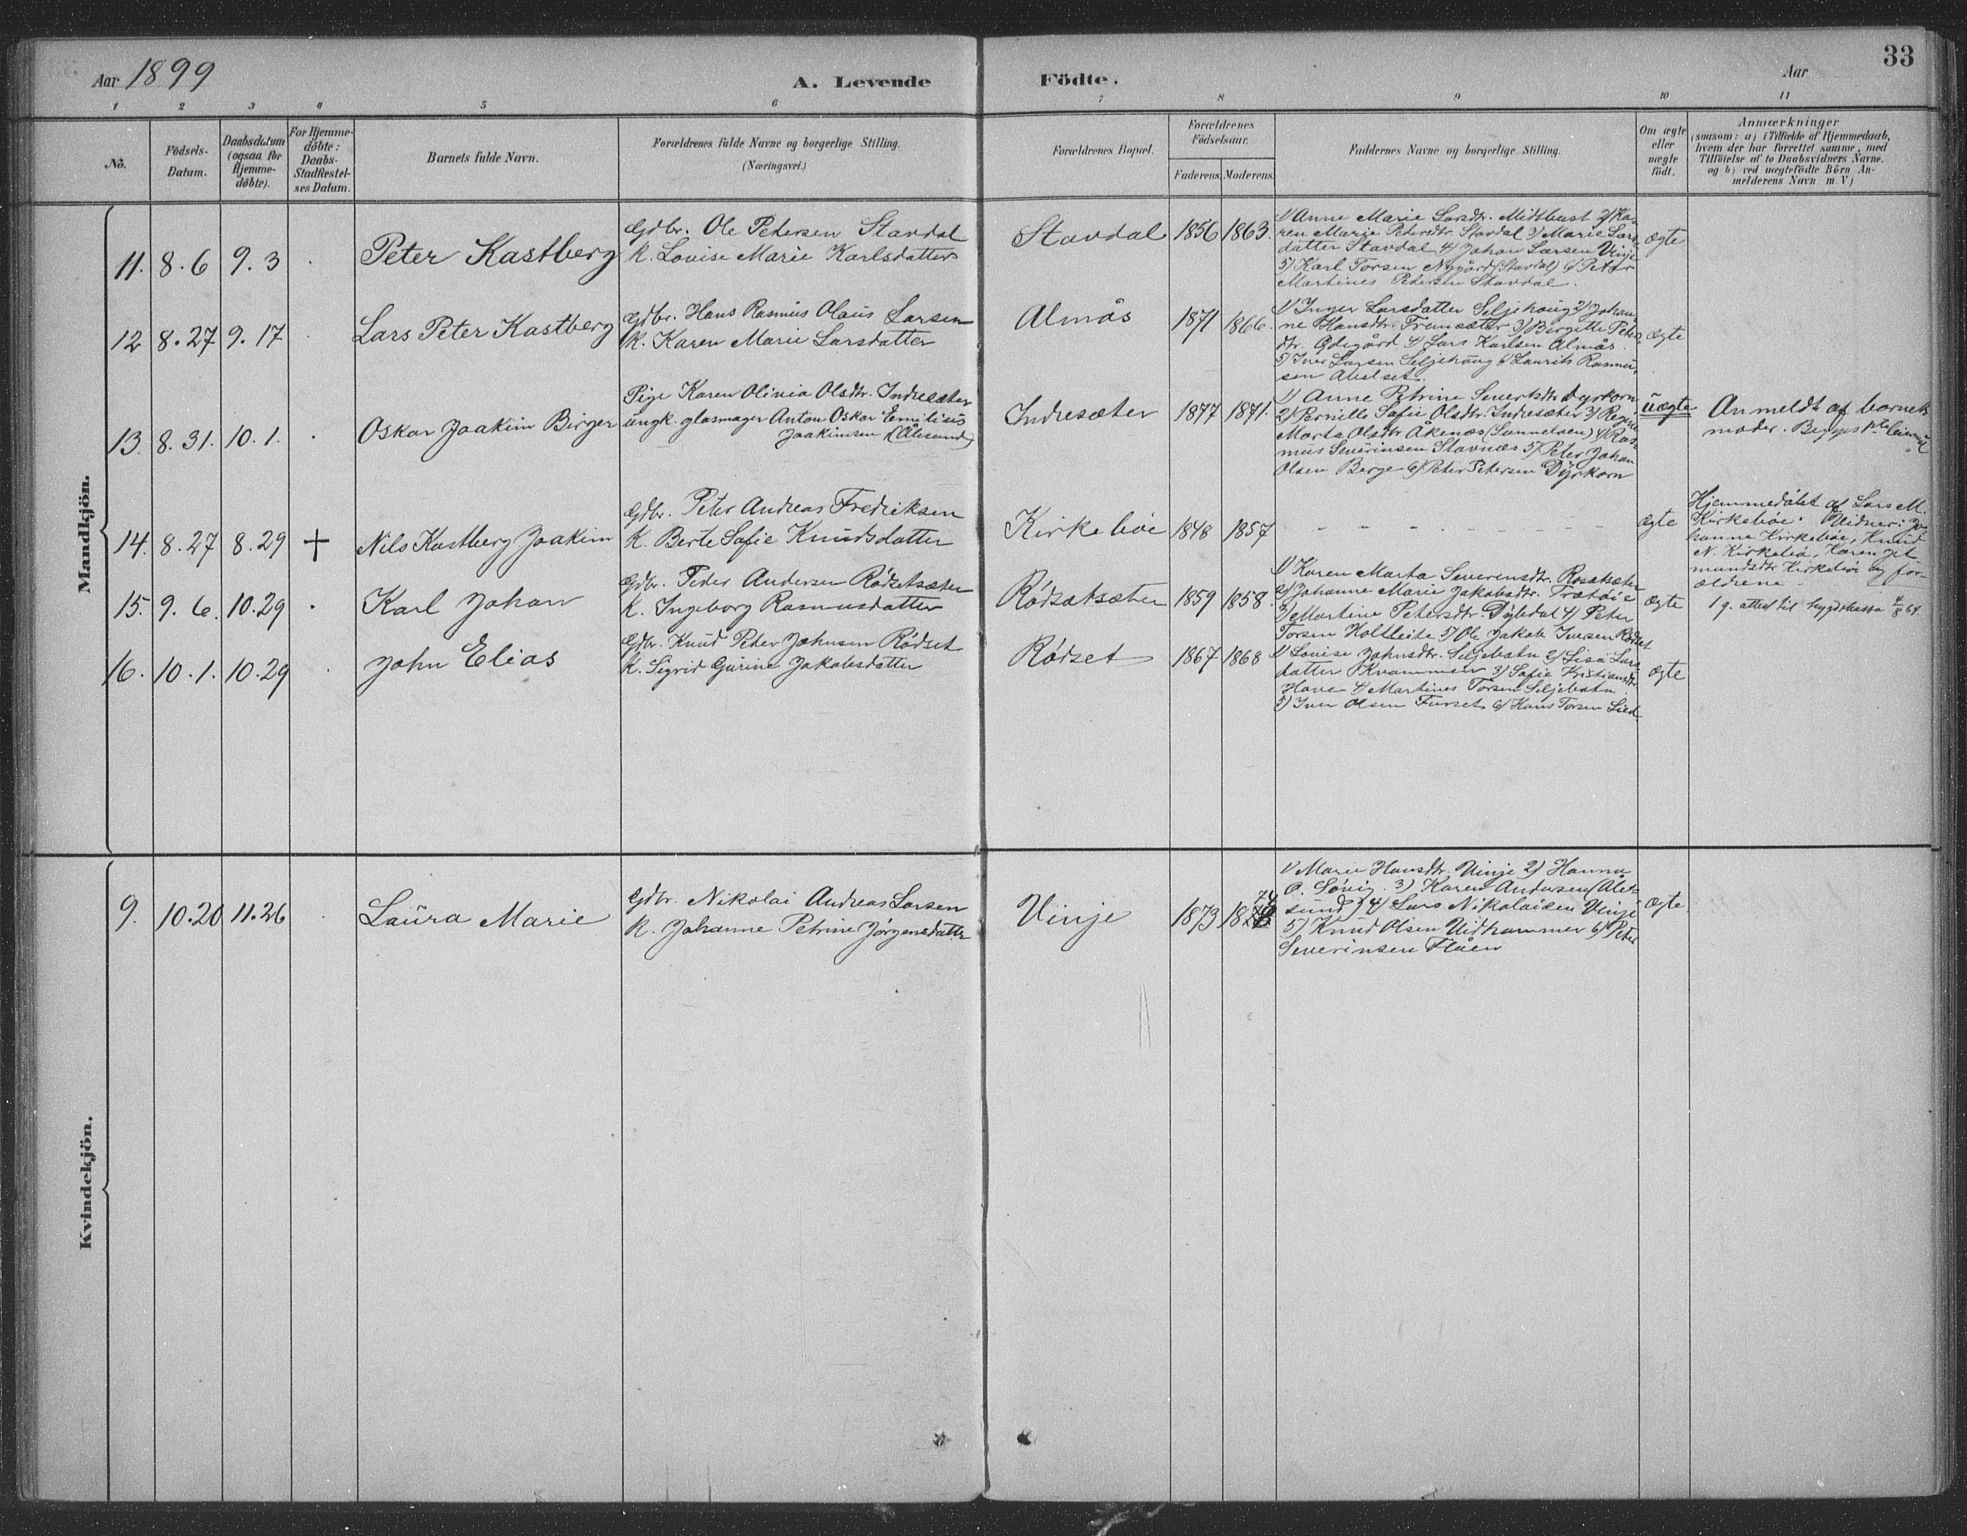 Aar 1899
A. Levende
Födte.
Aar
33
1 2 3 4 5 6 7 8 9 10 11
No.
Födsels-
Datum.
Daabsdatum
(ogsaa for
Hjemme-
döbte).
For Hjemme-
döbte:
Daabs-
Stadfæstel-
ses Datum.
Barnets fulde Navn.
Forældrenes fulde Navne og borgerlige Stilling.
(Næringsvei.)
Forældrenes Bopæl.
Forældrenes
Födselsaar.
Faderens. Moderens.
Faddernes Navne og borgerlige Stilling.
Om ægte
eller
uægte
födt.
Anmærkninger
(saasom: a) i Tilfælde af Hjemmedaab,
hvem der har forrettet samme, med
Tilföielse af to Daabsvidners Navne,
og b) ved uægtefödte Börn An-
melderens Navn m. V.)
Mandkjön.
11. 8.6 9.3
Peter Kastberg
Gdbr. Ole Petersen Stavdal
K. Louise Marie Karlsdatter
Stavdal
1856 1863.
1) Anne Marie Larsdtr. Midthust 2) Ka-
ren Marie Petersdtr. Stavdal 3) Marie Lars-
datter Stavdal 4) Johan Larsen Vinje
5) Karl Torsen Nygård (Stavdal) 6) Peter
Martines Petersen Stavdal.
ægte
12 8.27 9.17
Lars Peter Kastberg
Gdbr. Hans Rasmus Olaus Larsen
K. Karen Marie Larsdatter
Almås
1871 1866.
1) Inger Larsdatter Seljehaug 2) Johan-
ne Hansdtr. Fremsæter 3) Bergitte Peters-
dtr. Ødegård 4) Lars Karlsen Almås
5) Iver Larsen Seljehaug 6) Laurits Rasmu-
sen
ægte
13. 8.31. 10.1.
Oskar Joakim Birger
Pige Karen Olivia Olsdtr. Indresæter
ungk. glasmager Anton Oskar Emilius
Joakimsen (Ålesund)
Indresæter
1877 1871.
1) Anne Petrine Severtsdtr. Dyrkorn
2) Pernille Sofie Olsdtr. Indresæter 3) Regine
Marta Olsdtr. Åkenæs (Sunnelven) 4) Ras-
mus Severinsen Stavnæs 5) Peter Johan
Olsen Berge 6) Peter Petersen Dyrkorn
uægte
Anmeldt af barnets
moder. Begges 1ste leiermål
14. 8.27 8.29 +
Nils Kastberg Joakim
Gdbr. Peter Andreas Fredriksen
K. Berte Sofie Knudsdatter
Kirkebøe
1848 1857
ægte
Hjemmedøbt af Lars M.
Kirkebøe. Vidner: Jo-
hanne Kirkebøe, Knud
N. Kirkebøe, Karen
mundsdtr Kirkebøe og for-
ældrene.
15. 9.6. 10.29
Karl Johan
Gdbr. Peder Andersen Rødsetsæter
K. Ingeborg Rasmusdatter
Rødsetsæter
1859 1858.
1) Karen Marta Severensdtr.
2) Johanne Marie Jakobsdtr.
3) Martine Petersdtr. Dybdal 4) Peter
Torsen Holtleite 5) Ole Jakob Iversen Rødset
ægte
1 g. attest til bygdekassa 4/8 64
16. 10.1. 10.29
John Elias
Gdbr. Knud Peter Johnsen Rødset
K. Sigrid Gurine Jakobsdatter
Rødset
1867 1868
1) Louise Johnsdtr. Seljebotn 2) Lisa Lars-
datter Kvammen 3) Sofie Kristiansdtr.
Hove 4) Martines Torsen Seljebotn
5) Iver Olsen Furset 6) Hans Torsen
ægte
Kvindekjön.
9. 10.20 11.26
Laura Marie
Gdbr. Nikolai Andreas Larsen
K. Johanne Petrine Jørgensdatter
Vinje
1873 1874
1) Marie Hansdtr. Vinje 2) Hanna
P. Søvig. 3) Karen Andersen (Ale-
sund) 4) Lars Nikolaisen Vinje
5) Knud Olsen Vidhammer 6) Peter
Severinsen Flåen
ægte